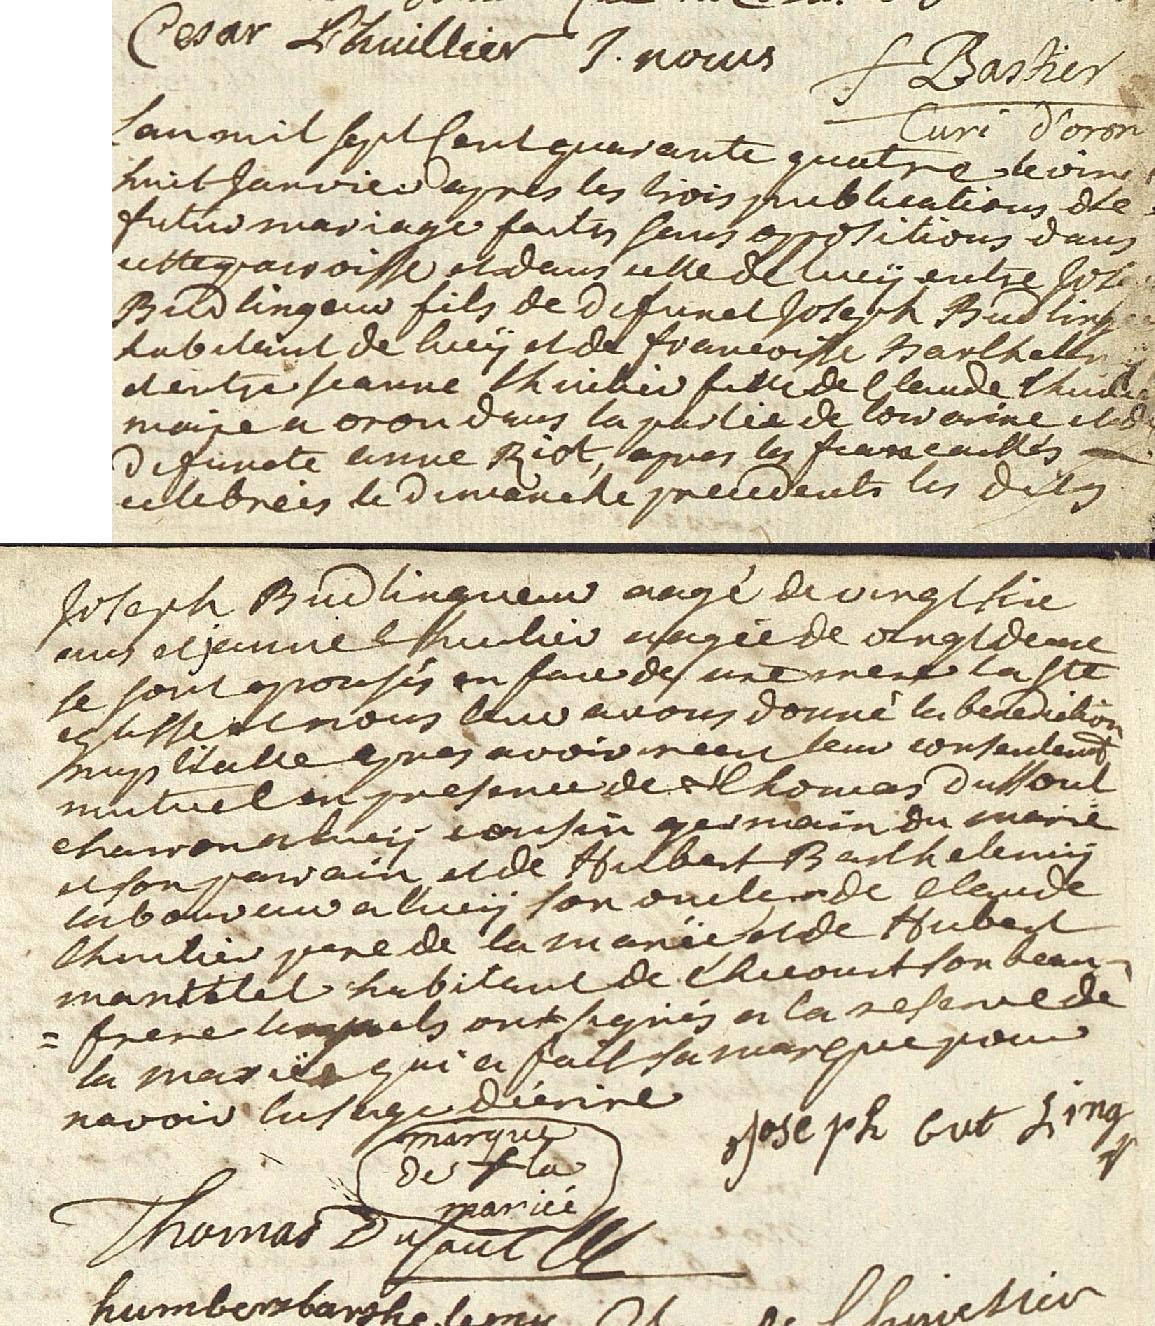 Cesar Lhuillier J. nous
f Bastier
Curé d'oron
Lan mil sept Cent quarante quatre le vint
huit Janvier apres les trois publications de
futur mariage faites sans oppositions dans
cette paroisse et dans celle de lucÿ entre Jose
Budlingeur fils de defunct Joseph Budling
habitant de lucÿ et de francoisse Barthelem
et entre jeanne Lhuilier fille de Claude Lhuil
maire a oron dans la partie de lorraine et de
defuncte anne Riot, apres les fiancailles
celebrées le dimanche precedents les dits
Joseph Budlingueur aagé de vingt six
ans et jeanne Lhuilier aagée de vingt deux
se sont epousés en face de nre mere la ste
eglisse et nous leur avons donné la benediction
nuptialle apres avoir receu leur consentemt
mutuel en presence de Thomas Dussout
charon a lucÿ cousin germain du marié
et son parain et de Hubert Barthelemÿ
laboureur a lucÿ son oncle de Claude
Lhuilier pere de la mariée et de Hubert
habitant de Chicourt son beau-
= frere lesquels ont signés a la reserve de
la mariée qui a fait sa marque pour
navoir lusage d'écrire
marque
de + la
mariée
Joseph but Ling
Thomas Dusaut
humber barthelemy Lhuellier